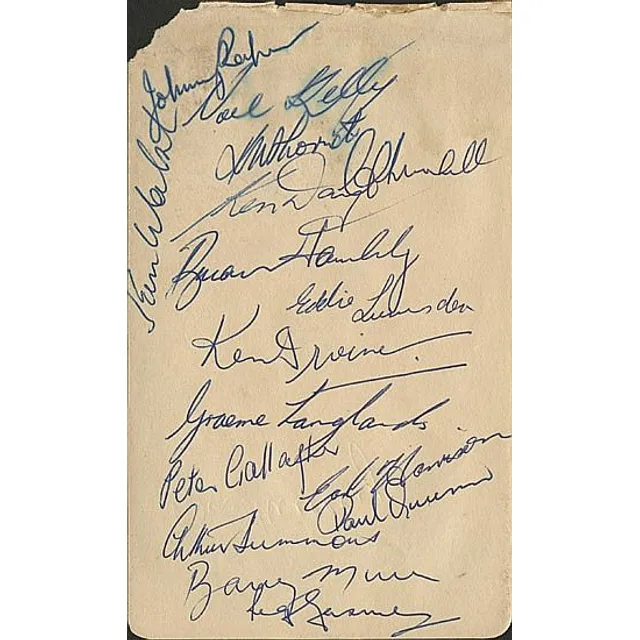 Johnny Raper
Ken Walsh
Noel Kelly
Ken Day
Brian Hambly
Eddie Lumsden
Ken Irvine
Graeme Langlands
Peter Gallagher
Earl Harrison
Paul Quinn
Arthur Summons
Barry Muir
Reg Gasnier